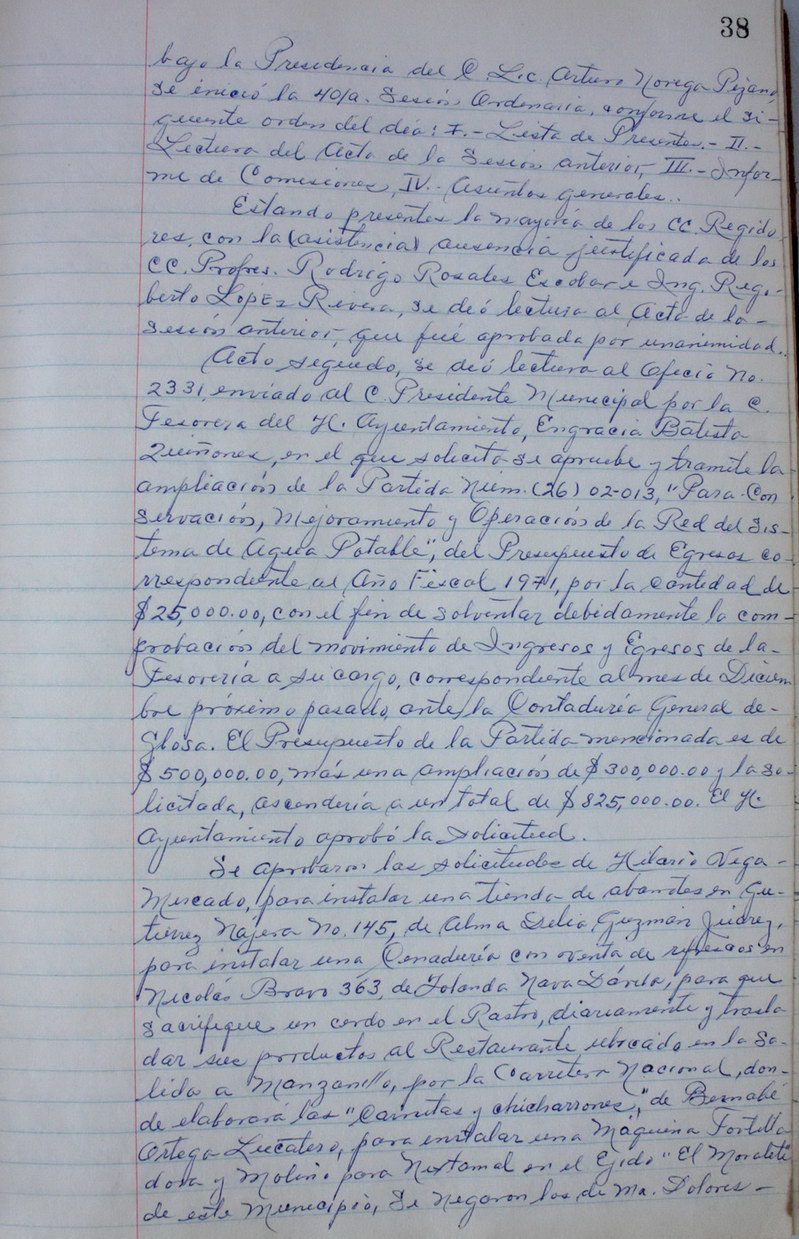 38
bajo la Presidencia del C. Lic. Arturo Noriega Pizano
se inició la 40/a. Sesión Ordinaria, conforme el si-
guiente orden del día: I.- Lista de Presentes.- II.-
Lectura del Acta de la Sesión anterior, III.- Infor-
me de Comisiones, IV.- Asuntos generales..
Estando presentes la mayoría de los CC. Regido
res, con la (asistencia) ausencia justificada de los
CC. Profres. Rodrigo Rosales Escobar e Ing. Rigo-
berto López Rivera, se dió lectura al Acta de la-
Sesión anterior, que fué aprobada por unanimidad..
Acto seguido, se dió lectura al Oficio No.
2331, enviado al C. Presidente Municipal por la C.
Tesorera del H. Ayuntamiento, Engracia Batista
Quiñones, en el que solicita se apruebe y tramite la
ampliación de la Partida Núm. (26) 02-013, "Para Con
servación, Mejoramiento y Operación de la Red del Sis-
tema de Agua Potable", del Presupuesto de Egresos co-
rrespondiente al Año Fiscal 1971, por la cantidad de
$25,000.00, con el fin de solventar debidamente la com-
probación del movimiento de Ingresos y Egresos de la-
Tesorería a su cargo, correspondiente al mes de Diciem
bre próximo pasado, ante la Contaduría General de-
Glosa. El Presupuesto de la Partida mencionada es de
$500,000.00, más una ampliación de $300,000.00 y la so-
licitada, ascendería a un total de $825,000.00. El H.
Ayuntamiento aprobó la solicitud.
Se aprobaron las solicitudes de Hilario Vega-
Mercado, para instalar una tienda de abarrotes en Gu-
tiérrez Nájera No. 145, de Alma Delia Guzmán Juárez,
para instalar una Cenaduría con venta de refrescos en
Nicolás Bravo 363, de Yolanda Nava Dávila, para que
sacrifique un cerdo en el Rastro, diariamente y trasla
dar sus productos al Restaurante ubicado en la Sa-
lida a Manzanillo, por la Carretera Nacional, don-
de elaborará las "Carnitas y chicharrones", de Bernabé
Ortega Lucatero, para instalar una Máquina Tortilla
dora y Molino para Nixtamal en el Ejido "El
de este Municipio, Se negaron las de Ma. Dolores-